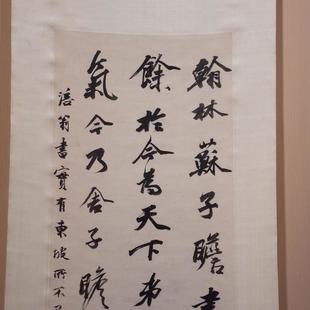 翰林蘇子瞻書
餘於今為天下弟
氣今乃舍子瞻
涪翁書實有東坡所不及